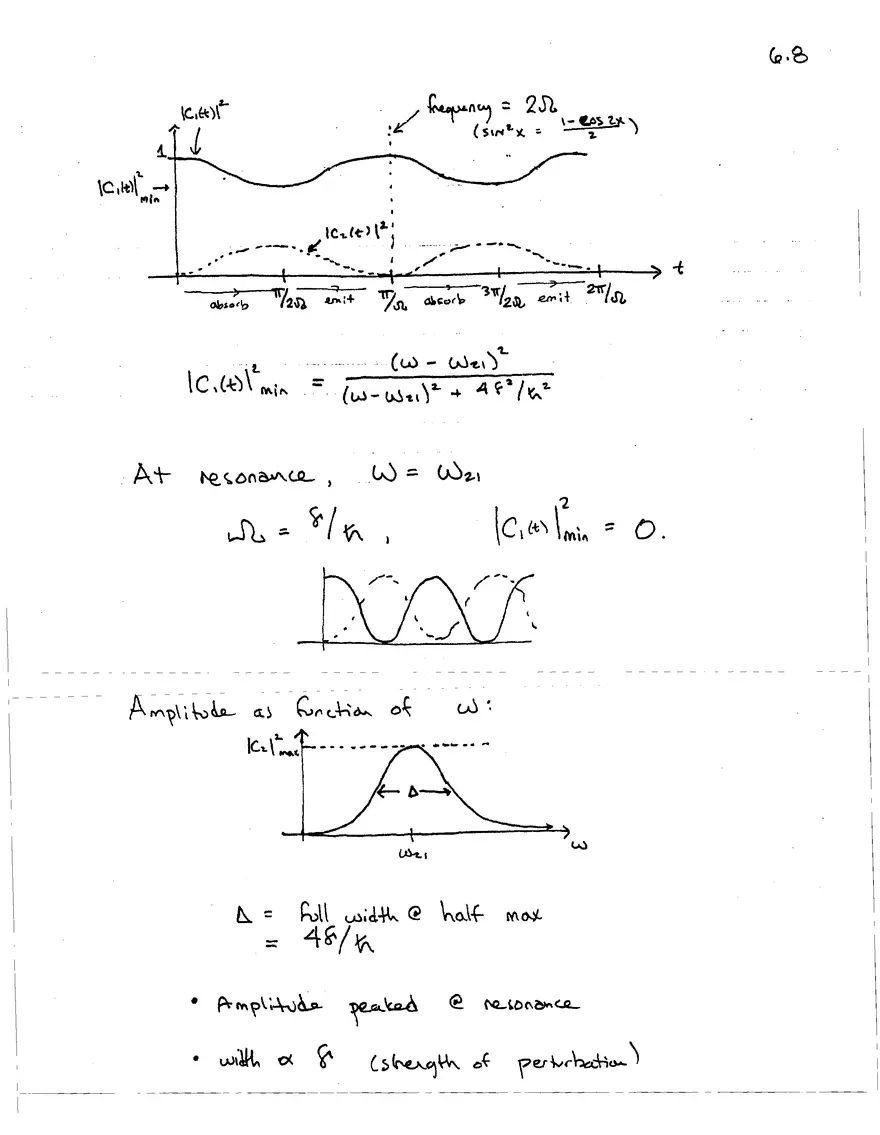 6.8
|C₁(t)|²
frequency = 2Ω
(sin²x = (1 - cos 2x)/2)
1
|C₁(t)|²min →
|C₂(t)|²
t
absorb π/2Ω emit π/Ω absorb 3π/2Ω emit 2π/Ω
|C₁(t)|²min = (ω - ω₂₁)² / ((ω - ω₂₁)² + 4γ²/ħ²)
At resonance, ω = ω₂₁
Ω = γ/ħ , |C₁(t)|²min = 0.
Amplitude as function of ω:
|C₂|²max
← Δ →
ω₂₁
ω
Δ = full width @ half max
= 4γ/ħ
• Amplitude peaked @ resonance
• width ∝ γ (strength of perturbation)